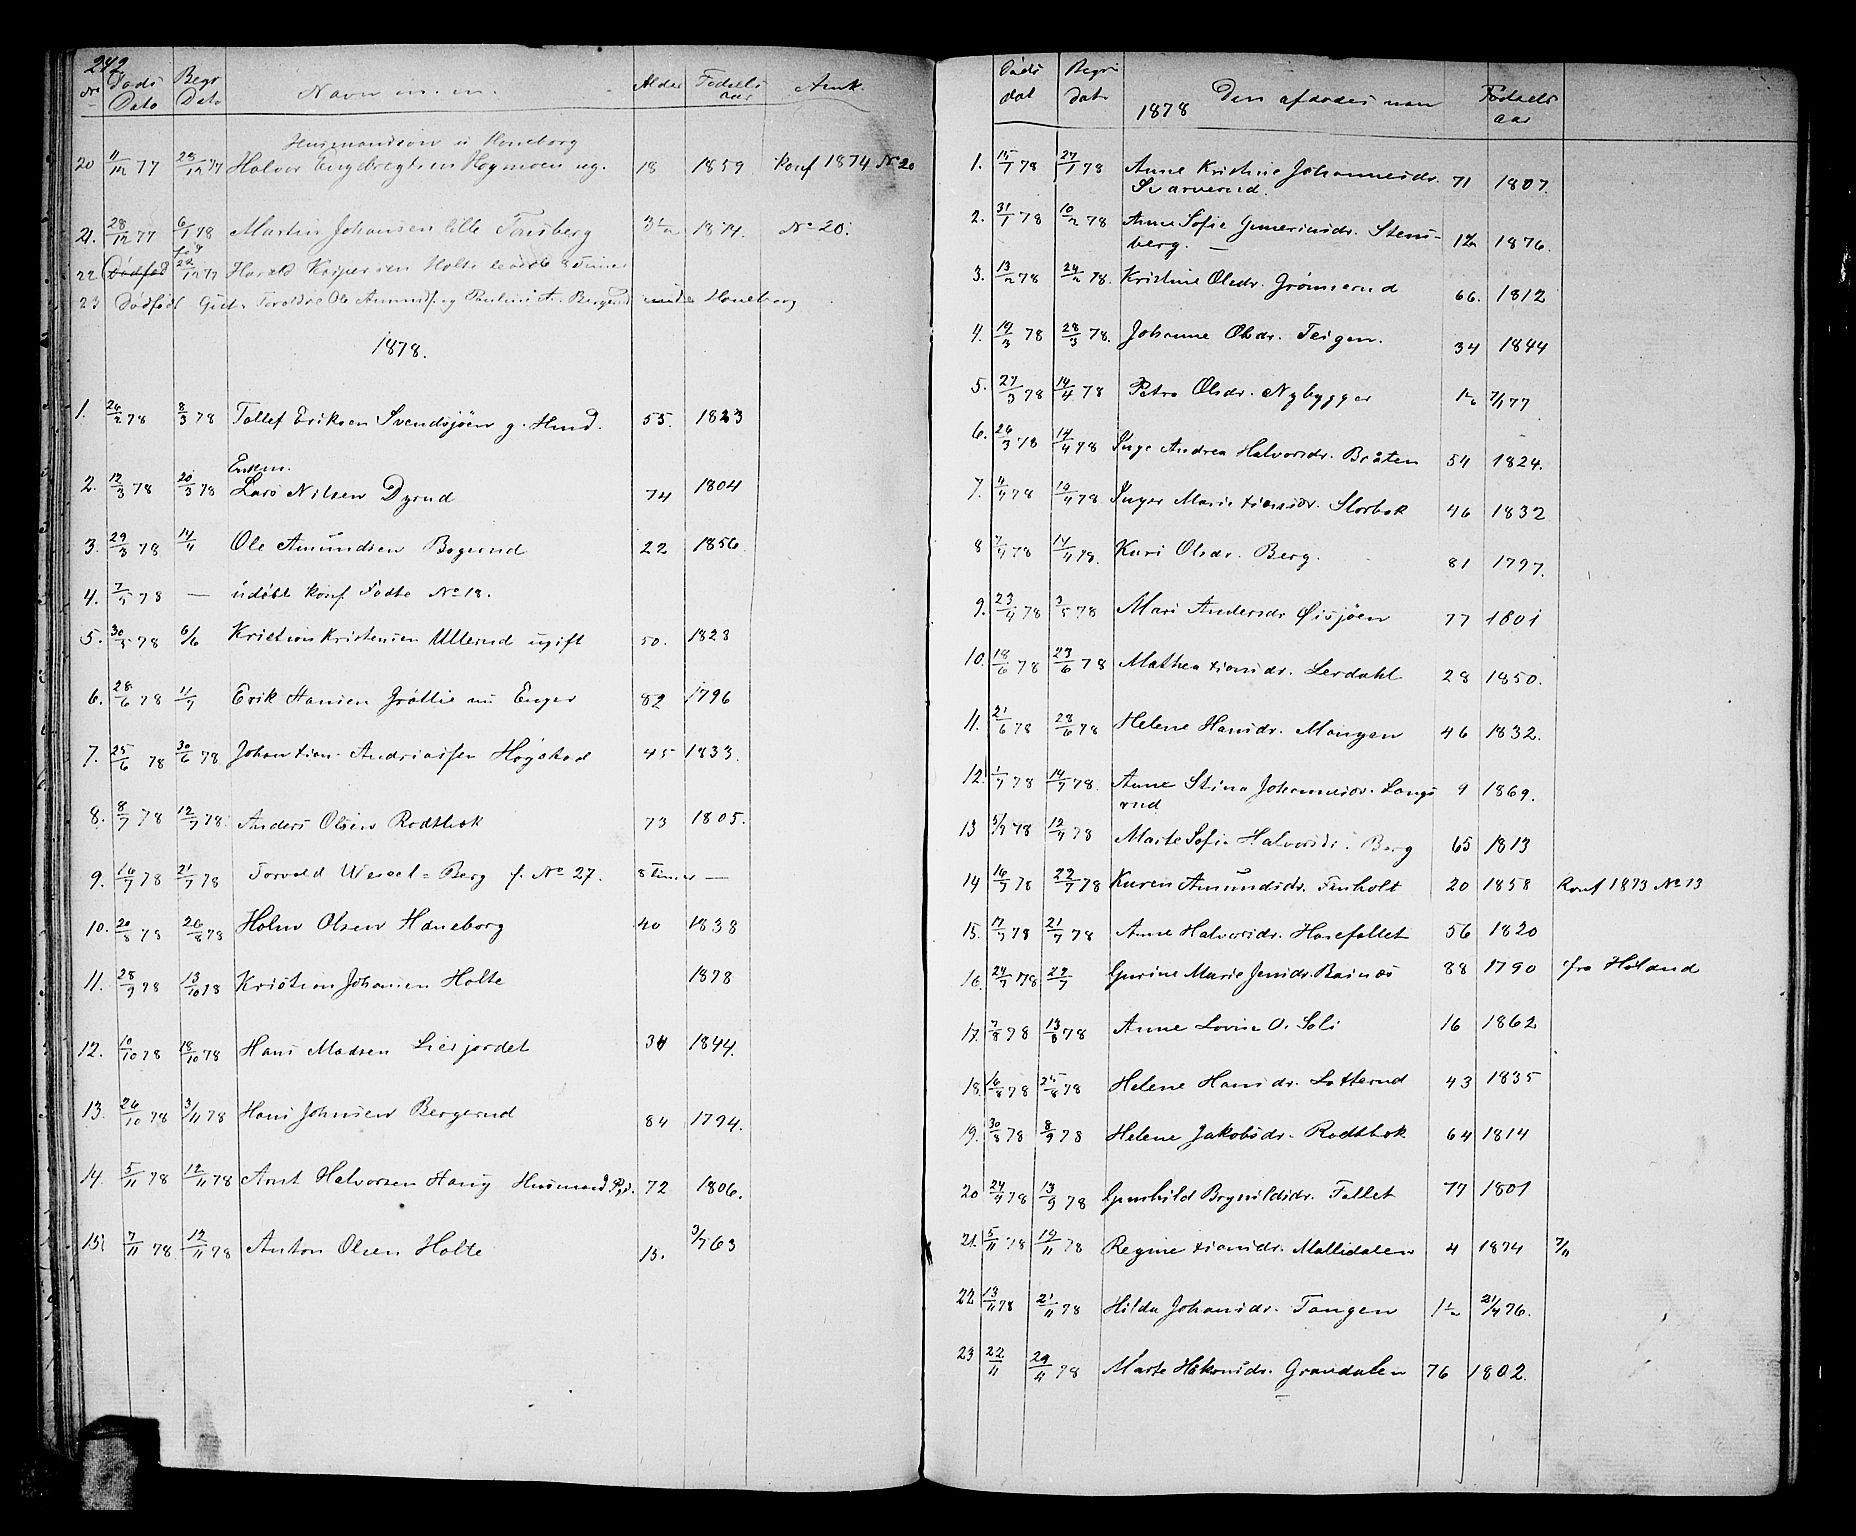 242
Nr Døds Dato Begr Dato Navn m. m. Alder Fødsels aar Ank.
Husmandsøn u Honeborg
20 11/12 77 23/12 77 Halvor Engebregtsen Hogmoen ug. 18 1859 Konf 1874 No 20
21. 28/12 77 6/1 78 Martin Johansen lille Tonsberg 3 1/2 1874. No 20.
22 Dødfød 22/12 77 Harald Kaspersen Holte levede 8 Timer
23 Dødfødt Gut. Foreldre Ole Amundsf. og Pauline A. Bergerud under Haneborg
1878.
1. 26/2 78 8/3 78 Tollef Eriksen Svendsjøen g. Hmd. 55. 1823
Enkem.
2. 12/3 78 20/3 78 Lars Nilsen Dyrud 74 1804
3. 29/3 78 14/4 Ole Amundsen Bøgerud 22 1856.
4. 7/5 78 — udøbt konf Fødte No 18.
5. 30/5 78 6/6 Kristian Kristensen Ullerud ugift 50. 1828
6. 28/6 78 11/7 Erik Hansen Grøttie nu Enger 82 1796
7. 25/6 78 30/6 78 Johan tian Andreasſen Høgstad 45 1833.
8. 8/7 78 12/7 78. Anders Olsen Rødtbøk 73 1805.
9. 16/7 78 21/7 78 Torvald Wessel-Berg f. No 27. 8 Timer —
10. 20/8 78 26/8 78 Holm Olsen Haneborg 40 1838
11. 28/9 78 13/10 78 Kristian Johansen Holte 1878
12. 10/10 78 18/10 78 Hans Madsen Liesjordet 34 1844.
13. 26/10 78 3/11 78 Hans Johnsen Bergerud 84 1794.
14. 5/11 78 12/11 78 Arnt Halvorsen Haug Husmand 72 1806.
15. 7/11 78 12/11 78 Anton Olsen Holte 15. 3/7 63
Døds dat Begr dat 1878 Den afdødes navn Fødsels aar
1. 15/1 78 27/1 78 Anne Kristine Johannesdr. Svarverud. 71 1807.
2. 31/1 78 10/2 78 Anne Sofie Gunerinsdr. Stens-
berg. — 1 1/2 1876.
3. 13/2 78 24/2 78. Kristine Olsdr. Grønnerud 66. 1812
4. 19/3 78 28/3 78. Johanne Olsdr. Teigen. 34 1844
5. 27/3 78 14/4 78 Petra Olsdr. Nybygger 7/1 77
6. 26/3 78 14/4 78 Inge Andrea Halvorsdr. Bråten 54 1824.
7. 4/4 78 19/4 78. Inger Marie tiansdr. Slorbøk 46 1832
8 7/4 78 14/4 78. Kari Olsdr. Berg. 81 1797.
9. 23/4 78 3/5 78 Mari Andersdr Øisjøen 77 1801
10. 18/6 78 23/6 78 Mathea tiansdr. Lerdahl 28 1850.
11. 21/6 78 28/6 78 Helene Hansdr. Mangen 46 1832.
12. 1/7 78 14/7 78. Anne Stina Johannesdr. Langs
rud 9 1869.
13 5/7 78 12/7 78 Marte Sofie Halvorsdr. Berg 65 1813
14 16/7 78 22/7 78 Karen Amundsdr. Finholt 20 1858 Konf 1873 No 13
15. 17/7 78 21/7 78 Anne Halvorsdr. Harefallet 56 1820
16. 24/7 78 29/7 Gurine Marie Jensdr. Rainæs 88 1790 fra Høland
17. 7/8 78 13/8 78 Anne Lovise O. Soli 16 1862
18. 16/8 78 25/8 78 Helene Hansdr. Lotterud 43 1835
19. 30/8 78 8/9 78 Helene Jakobsdr. Rødtbøk 64 1814
20 24/9 78 13/9 78 Gunhild Brynildsdr. Fallet 77 1801
21. 5/11 78 12/11 78 Regine tiansdr. Mallidalen 4 1874 7/11
22 13/11 78 21/11 78 Hilda Johansdr. Tangen 1 1/2 21/4 76.
23 22/11 29/11 78 Marte Håkonsdr. Grandalen 76 1802.